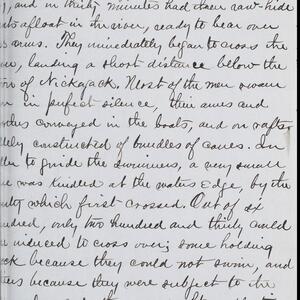 , and in thirty minutes had their raw-hide
afloat in the river, ready to bear over
arms. They immediately began to cross the
, landing a short distance below the
of Nickajack. Most of the men swam
in perfect silence, their arms and
conveyed in the boats, and on rafts
constructed of bundles of canes. In
to guide the swimmers, a very small
was kindled at the waters Edge, by the
which first crossed. Out of six
hundred, only two hundred and thirty could
induced to cross over; some holding
back because they could not swim, and
because they were subject to the